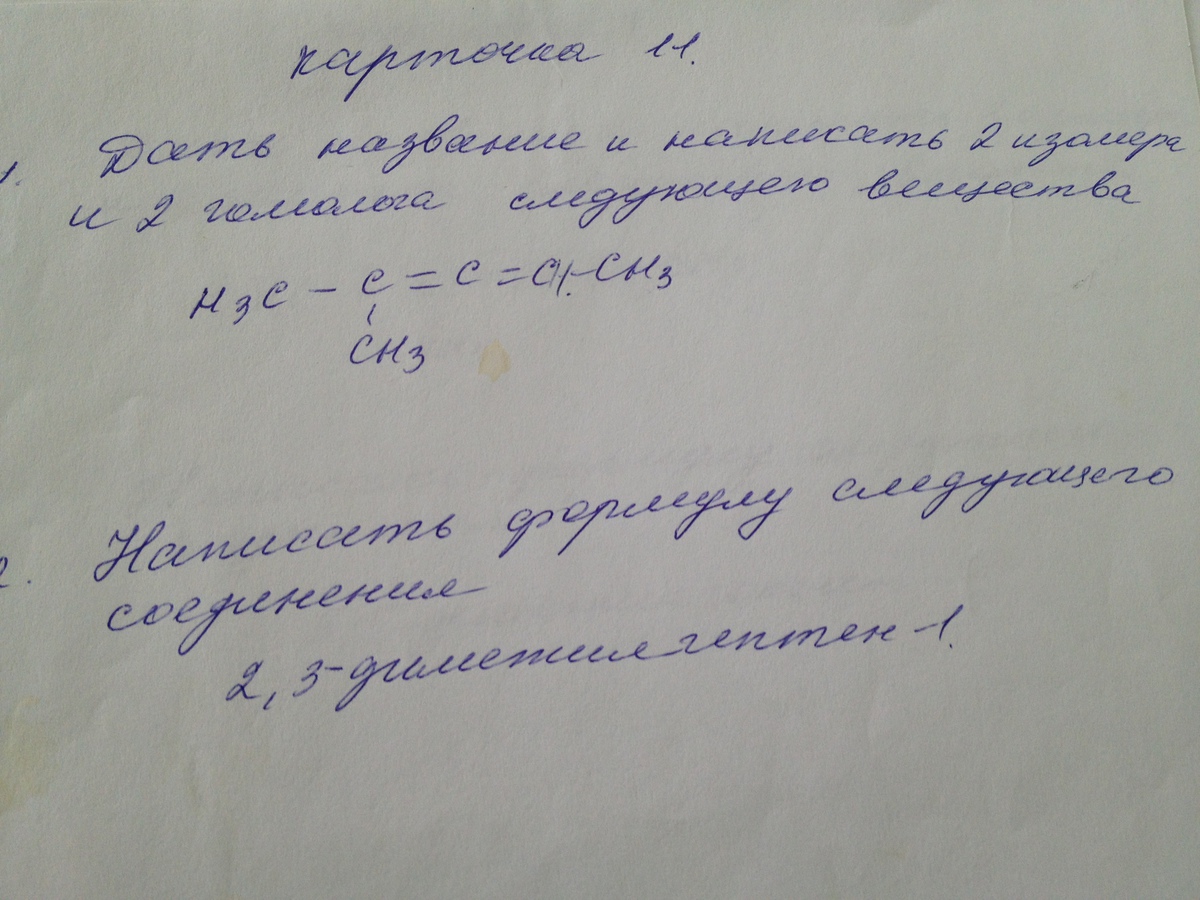 карточка 11.
1. Дать название и написать 2 изомера
и 2 гомолога следующего вещества
H3C – C = C = CH – CH3
CH3
2. Написать формулу следующего
соединения
2, 3-диметилгептен-1.